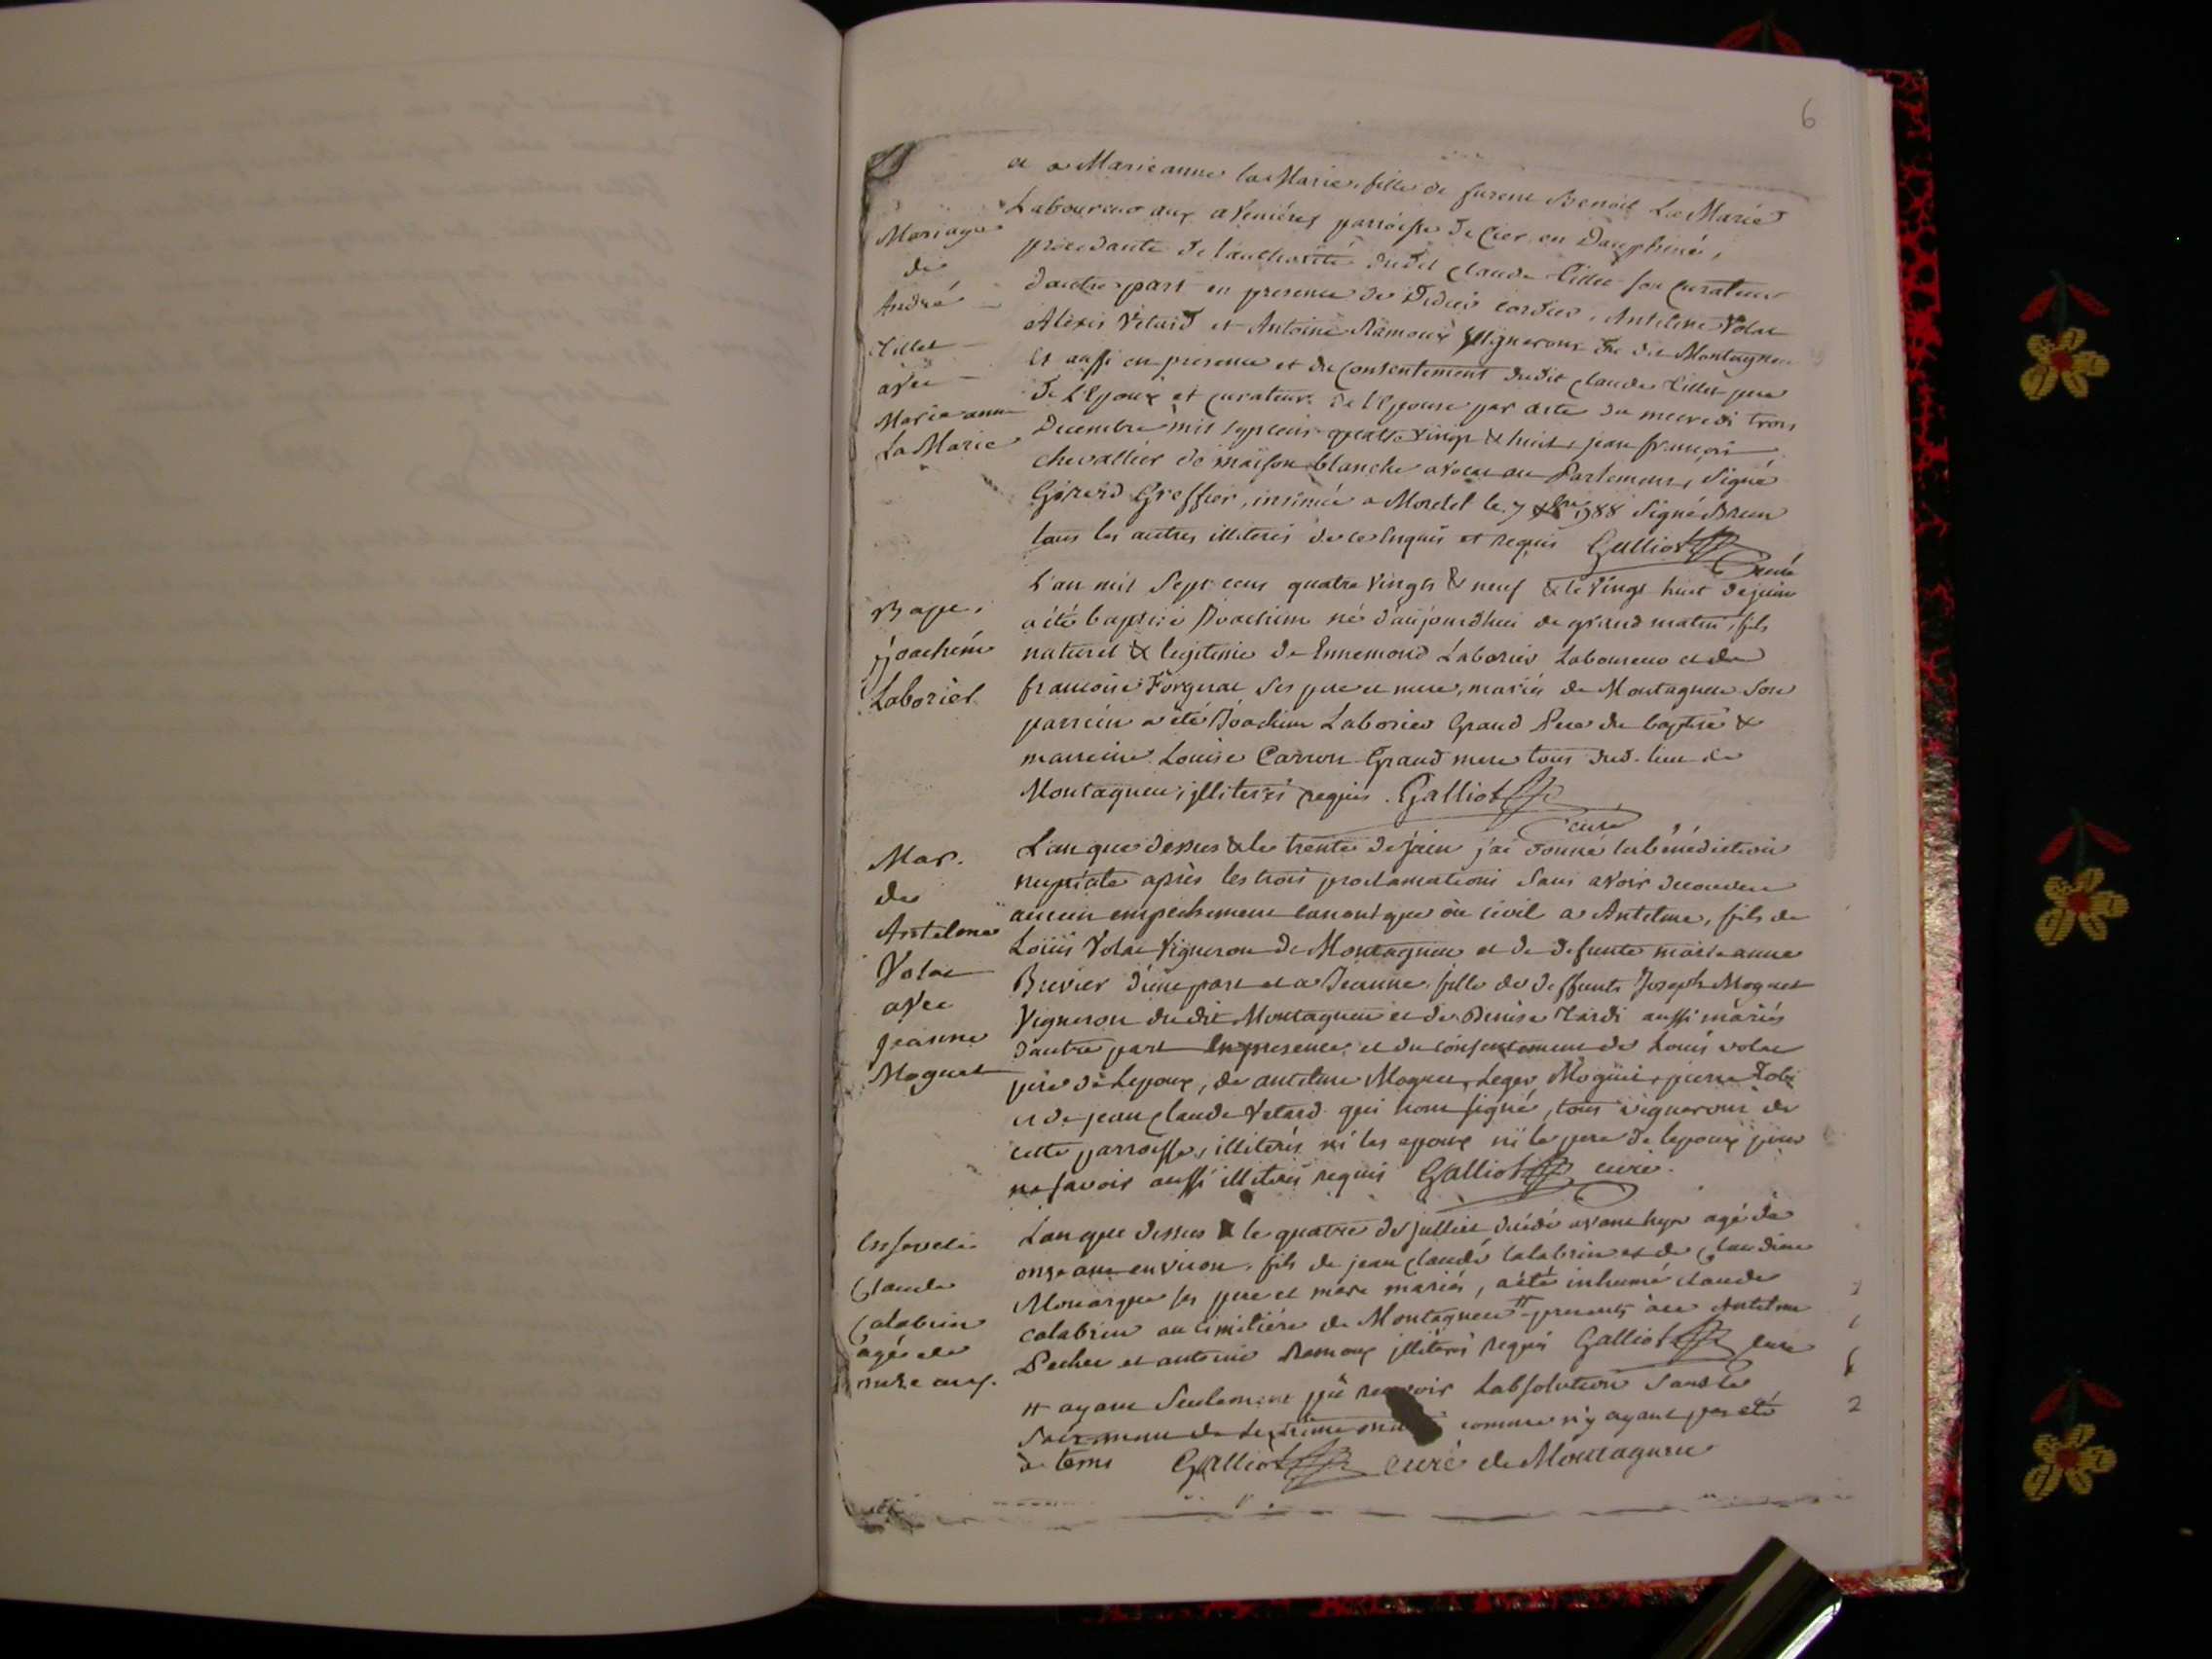 6
et a Marieanne la Marie, fille de furent Benoit La Marie
Laboureur aux avenières parroisse de Ciers en Dauphiné,
procedante de l'authorité dudit Claude Tillet son curateur
d'autre part en presence de Didier cordier, Antelme Volat
Alexis Vetard et Antoine Ramoux Vignerons du dit Montagneu
et aussi en presence et du consentement dudit Claude Tillet pere
de l'Epoux et curateur de l'Epouse par acte du mecredi trois
Decembre mil sept cens quatre vingt & huit, jean françois
chevallier de maison blanche avocat au Parlement, signé
Girerd Greffier, insinuée a Morestel le 7 1788 signé Brun
tous les autres illiterés de ce enquis et requis Galliot
curé
Mariage
de
André
Tillet
avec
Marie anne
La Marie
L'an mil sept cens quatre vingts & neuf & le vingt huit de juin
a été baptisé Joachim né d'aujourdhui de grand matin, fils
naturel & legitime de Ennemond Laborier Laboureur et de
francoise ses pere et mere, mariés de Montagneu son
parrein a été Joachim Laborier Grand Pere du baptisé &
marreine Louise Carron Grand mere tous dud. lieu de
Montagneu, illiterés requis. Galliot
curé
Bapt.
Joachim
Laborier
L'an que dessus & le trente de juin j'ai donné la bénédiction
nuptiale après les trois proclamations sans avoir decouvert
aucun empechement canonique ou civil a Antelme, fils de
Loüis Volat Vigneron de Montagneu et de defunte marieanne
Brevier d'une part et a Jeanne, fille de deffunts Joseph Moguet
Vigneron du dit Montagneu et de Denise Tardi aussi mariés
d'autre part en presence et du consentement de Louis volat
pere de Lepoux, de antelme Moguet, Leger Moguet, pierre
et de jean Claude Vetard qui n'ont signé, tous vignerons de
cette parroisse, illiterés ni les epoux ni le pere de lepoux pour
ne savoir aussi illiterés requis Galliot curé.
Mar.
de
Antelme
Volat
avec
Jeanne
Moguet
L'an que dessus & le quatre de juillet décédé avant hyer agé de
onze ans environ, fils de jean Claude Calabrin et de Claudine
Monarque ses pere et mere mariés, a été inhumé claude
calabrin au cimitiére de Montagneu # presents à ce Antelme
Pecher et antoine Ramoux illiterés requis Galliot curé
# ayant seulement pû recevoir Labsolution sans le
sacrement de Lextreme onction comme n'y ayant pas été
à tems Galliot curé de Montagneu
Enseveli
Claude
Calabrin
agé de
onze ans.
2